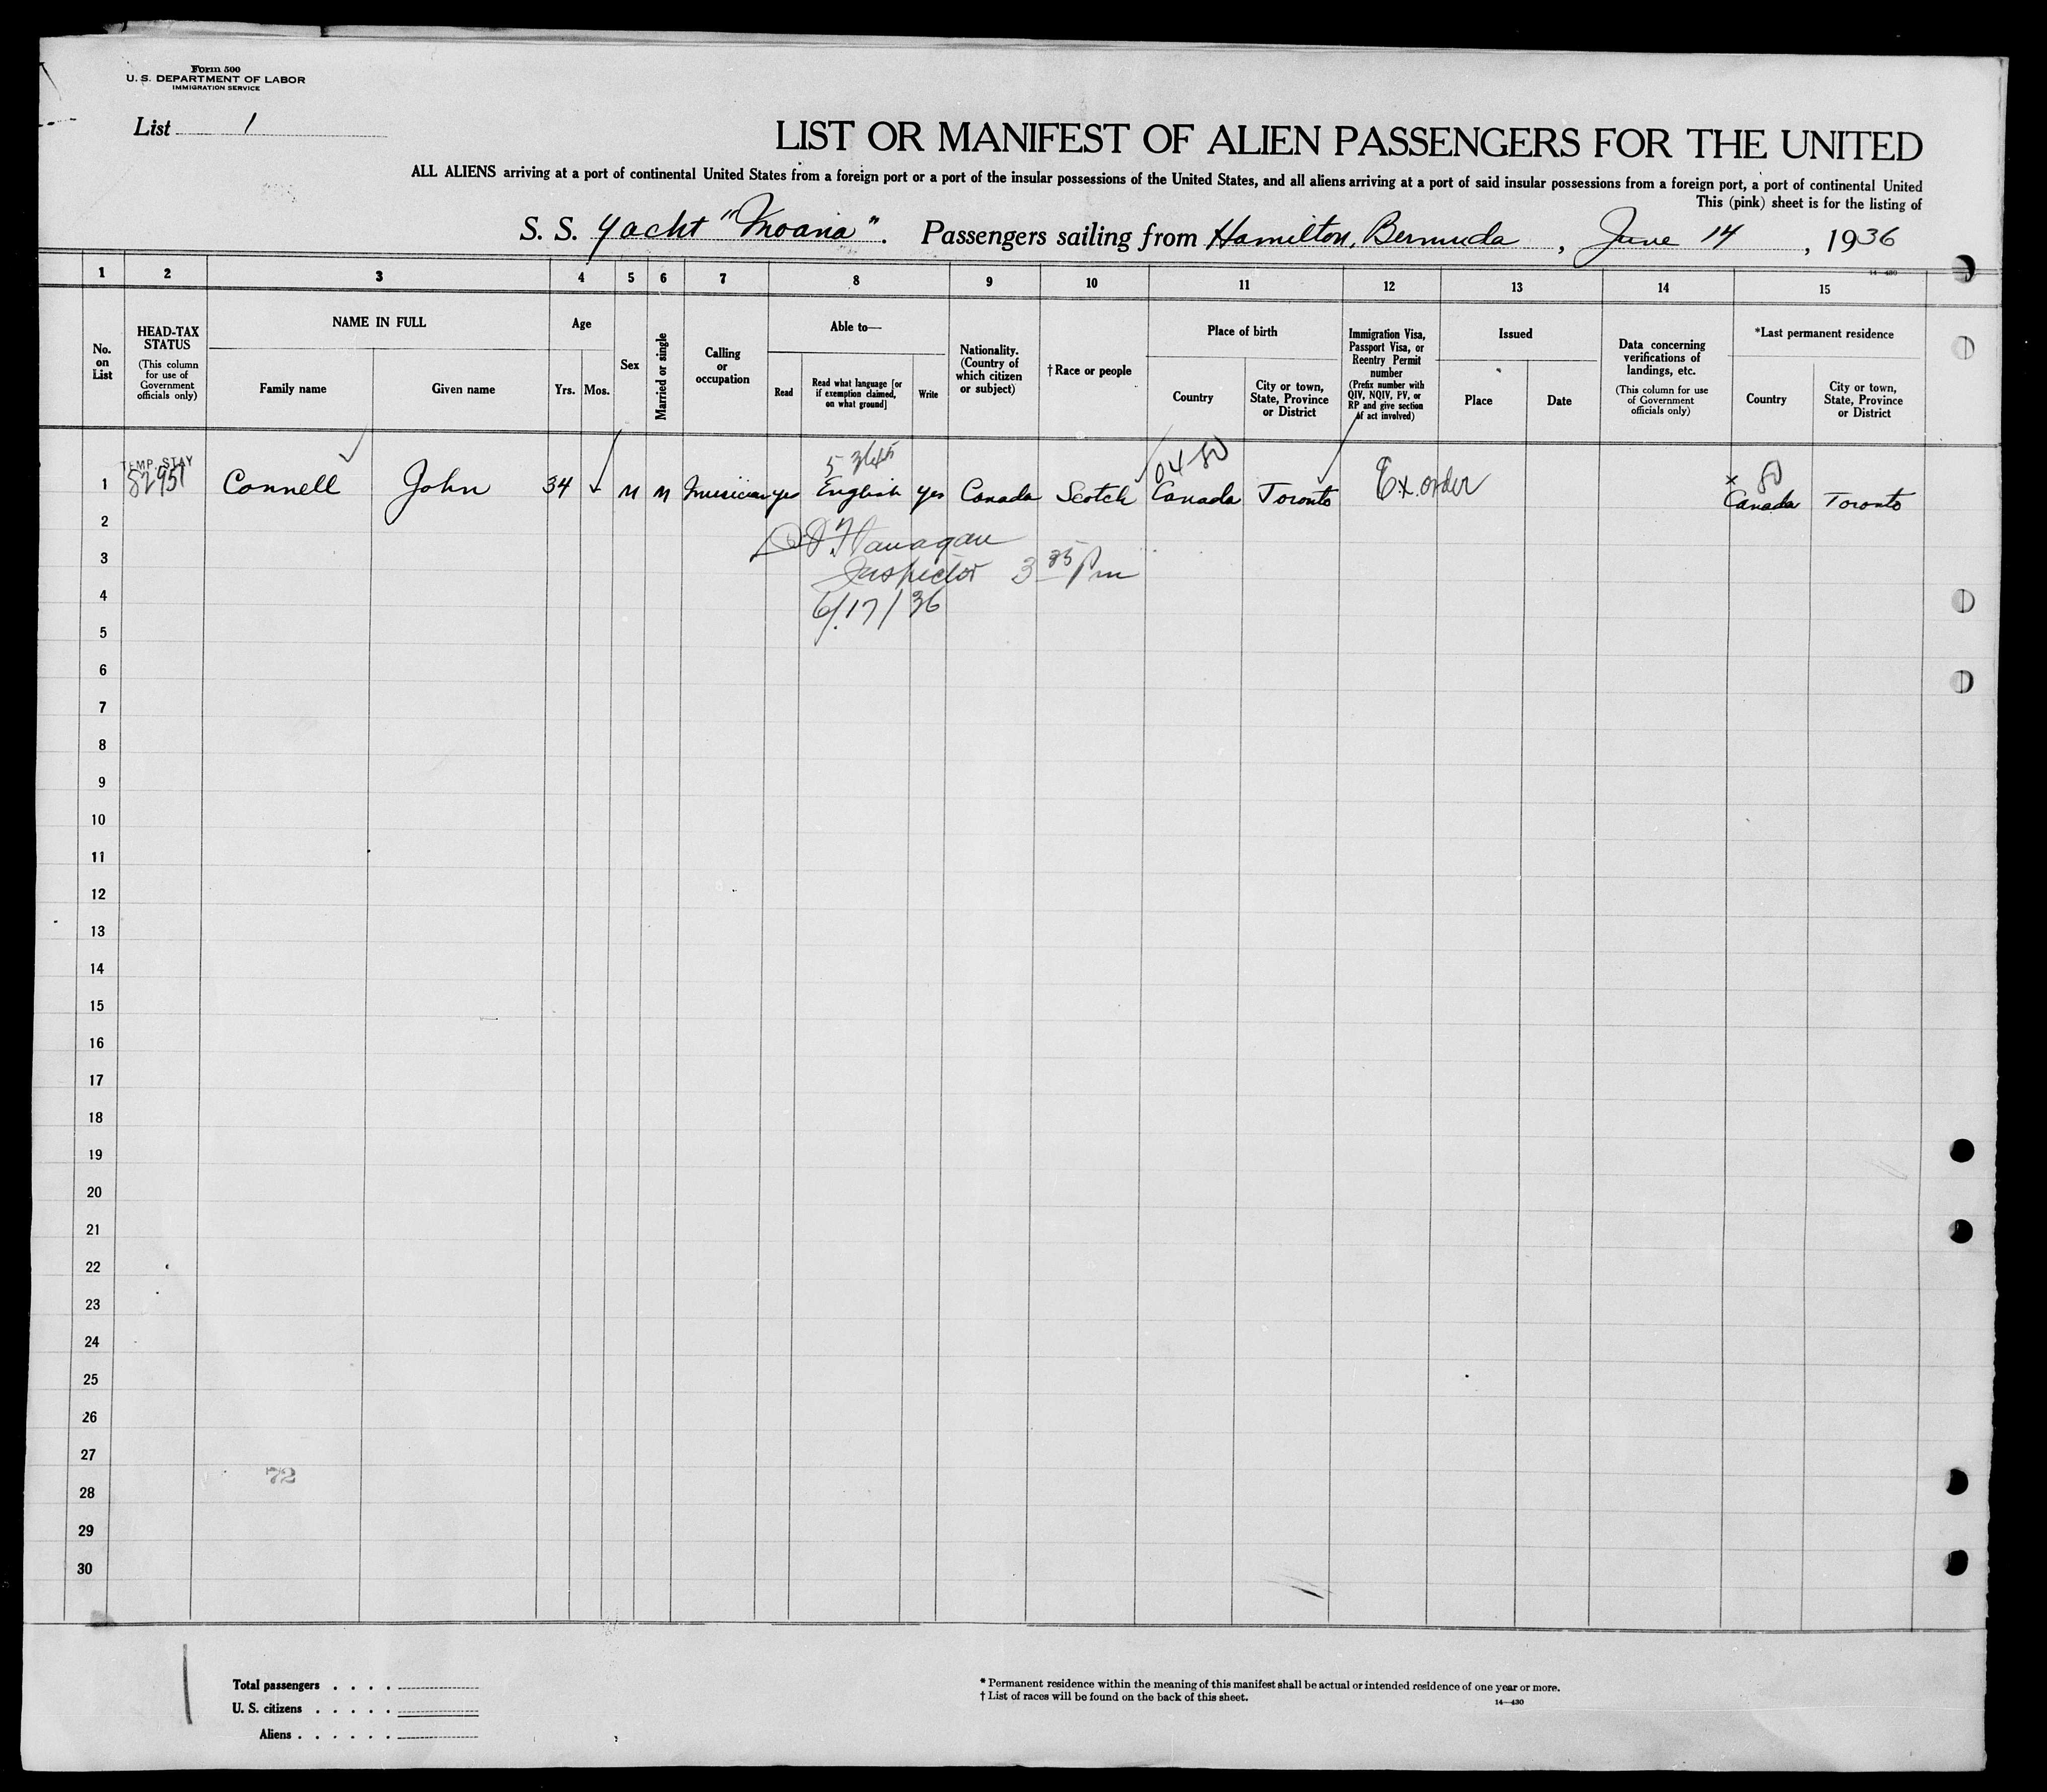 Form 500
U. S. DEPARTMENT OF LABOR
IMMIGRATION SERVICE
List 1
LIST OR MANIFEST OF ALIEN PASSENGERS FOR THE UNITED
ALL ALIENS arriving at a port of continental United States from a foreign port or a port of the insular possessions of the United States, and all aliens arriving at a port of said insular possessions from a foreign port, a port of continental United
This (pink) sheet is for the listing of
S. S. Yacht "Moana". Passengers sailing from Hamilton, Bermuda, June 14, 1936
14—430
1 2 3 4 5 6 7 8 9 10 11 12 13 14 15
No. on List
HEAD-TAX STATUS
(This column for use of Government officials only)
NAME IN FULL
Family name
Given name
Age
Yrs.
Mos.
Sex
Married or single
Calling or occupation
Able to—
Read
Read what language [or if exemption claimed, on what ground]
Write
Nationality. (Country of which citizen or subject)
† Race or people
Place of birth
Country
City or town, State, Province or District
Immigration Visa, Passport Visa, or Reentry Permit number
(Prefix number with QIV, NQIV, PV, or RP and give section of act involved)
Issued
Place
Date
Data concerning verifications of landings, etc.
(This column for use of Government officials only)
*Last permanent residence
Country
City or town, State, Province or District
TEMP. STAY
04-80
80
1 Connell John 34 M M Musician yes English yes Canada Scotch Canada Toronto Ex. order x Canada Toronto
2
Flanagan
3
Inspector 3 35 Pm
4
6/17/36
5
6
7
8
9
10
11
12
13
14
15
16
17
18
19
20
21
22
23
24
25
26
27
72
28
29
30
Total passengers . . . .
U. S. citizens . . . . .
Aliens . . . . . .
* Permanent residence within the meaning of this manifest shall be actual or intended residence of one year or more.
† List of races will be found on the back of this sheet.
14—430